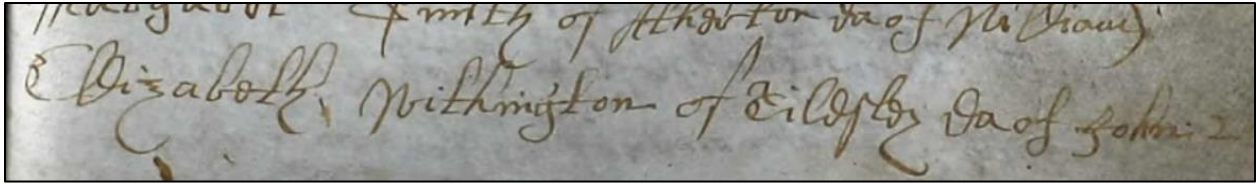 Margaret Smith of Atherton da of William
Elizabeth Withington of Tildsley da of John 2